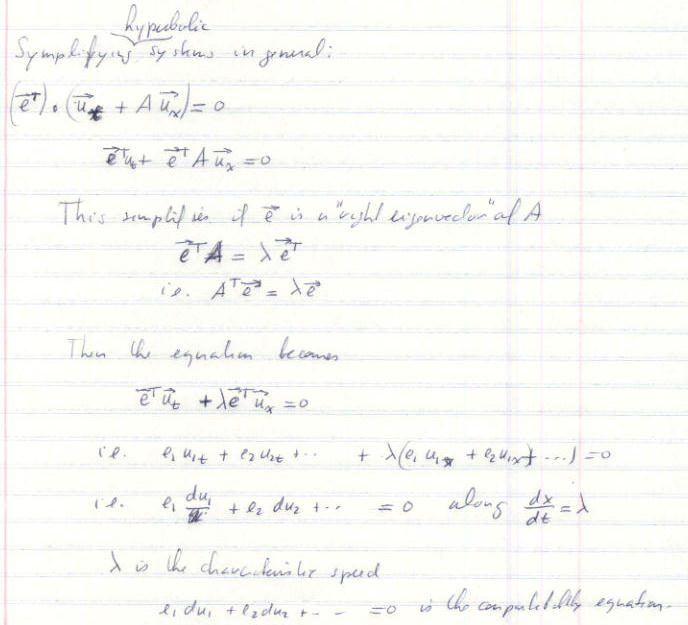 hyperbolic
Symplifying systems in general:
(e⃗ᵀ) · (u⃗ₜ + A u⃗ₓ) = 0
e⃗ᵀuₜ + e⃗ᵀ A u⃗ₓ = 0
This simplifies if e⃗ is a "right eigenvector" of A
e⃗ᵀA = λ e⃗ᵀ
i.e. Aᵀe⃗ = λe⃗
Then the equation becomes
e⃗ᵀu⃗ₜ + λe⃗ᵀu⃗ₓ = 0
i.e. e₁ u₁ₜ + e₂ u₂ₜ + ·· + λ(e₁ u₁ₓ + e₂ u₁ₓ + ...) = 0
i.e. e₁ du₁ + e₂ du₂ + ·· = 0 along dx/dt = λ
λ is the characteristic speed
e₁ du₁ + e₂ du₂ + ·· = 0 is the compatibility equation.